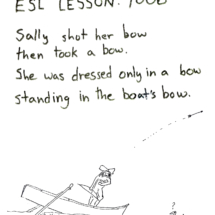 ESL LESSON:
Sally shot her bow
then took a bow.
She was dressed only in a bow
standing in the boat's bow.
?